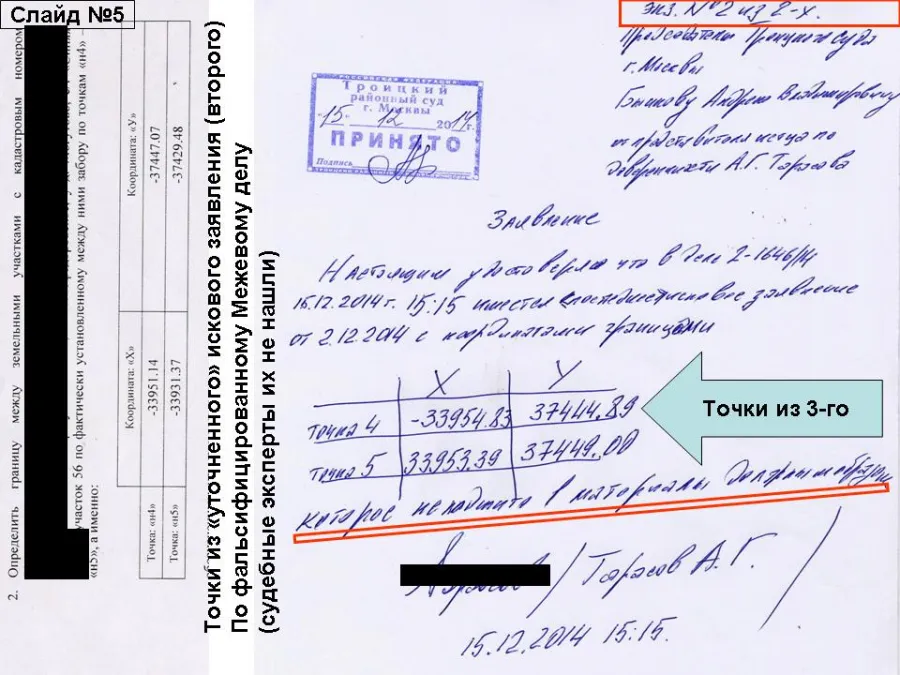 Слайд №5
2. Определить границу между земельными участками с кадастровым номером
участок 56 по фактически установленному между ними забору по точкам «н4» –
«н5», а именно:
Координата: «Х» Координата: «У»
Точка: «н4» -33951.14 -37447.07
Точка: «н5» -33931.37 -37429.48
Точки из «уточненного» искового заявления (второго)
По фальсифицированному Межевому делу
(судебные эксперты их не нашли)
экз. №2 из 2-х.
Троицкого суда
г. Москвы
Быкову Андрею Владимировичу
от представителя истца по
доверенности А.Г. Тарасова
РОССИЙСКАЯ ФЕДЕРАЦИЯ
Троицкий
районный суд
г. Москвы
"15" 12 2014 г.
ПРИНЯТО
Подпись
Заявление
Настоящим удостоверяю что в деле 2-1646/14
15.12.2014 г. 15:15 имеется исковое заявление
от 2.12.2014 с координатами границами
X Y
точка 4 -33954.83 37444.89
точка 5 33953.39 37449.00
Точки из 3-го
которое не подшито в материалы должным образом
Тарасов А.Г.
15.12.2014 15:15.